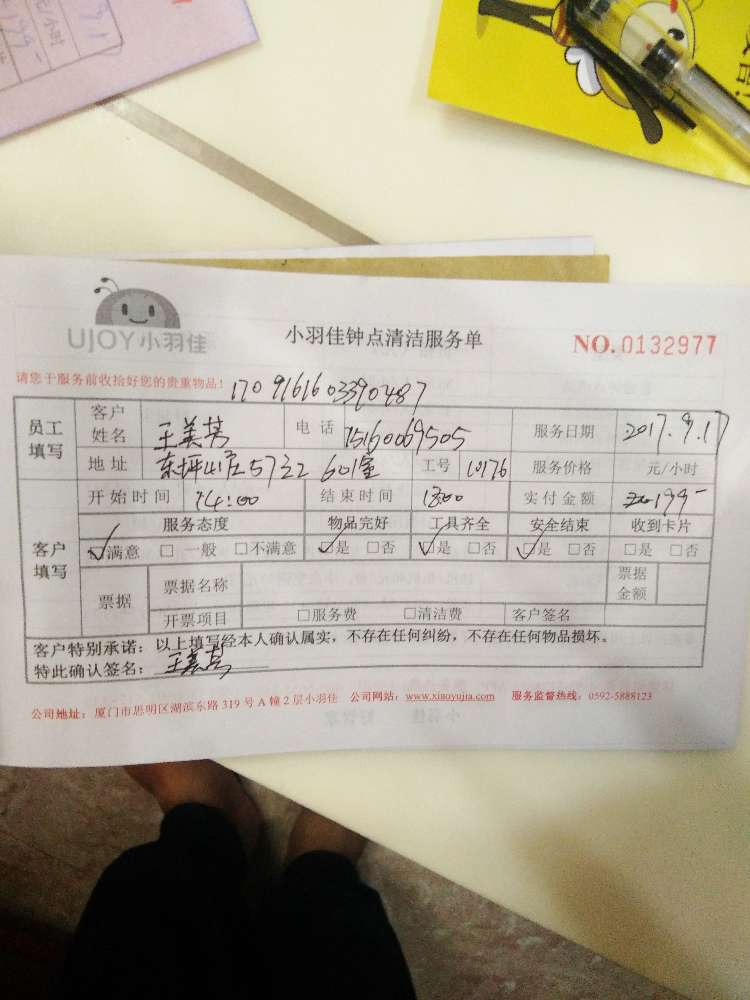 UJOY小羽佳
小羽佳钟点清洁服务单
NO.0132977
请您于服务前收拾好您的贵重物品!
1709161603390487
员工填写 客户姓名 王美芳 电话 15160069505 服务日期 2017.9.17
地址 东坪山庄57之2 601室 工号 10176 服务价格 元/小时
客户填写 开始时间 14:00 结束时间 18:00 实付金额 199-
服务态度 物品完好 工具齐全 安全结束 收到卡片
☑满意 □一般 □不满意 ☑是 □否 ☑是 □否 ☑是 □否 □是 □否
票据 票据名称 票据金额
开票项目 □服务费 □清洁费 客户签名
客户特别承诺:以上填写经本人确认属实,不存在任何纠纷,不存在任何物品损坏。
特此确认签名: 王美芳
公司地址:厦门市思明区湖滨东路319号A幢2层小羽佳 公司网站:www.xiaoyujia.com 服务监督热线:0592-5888123